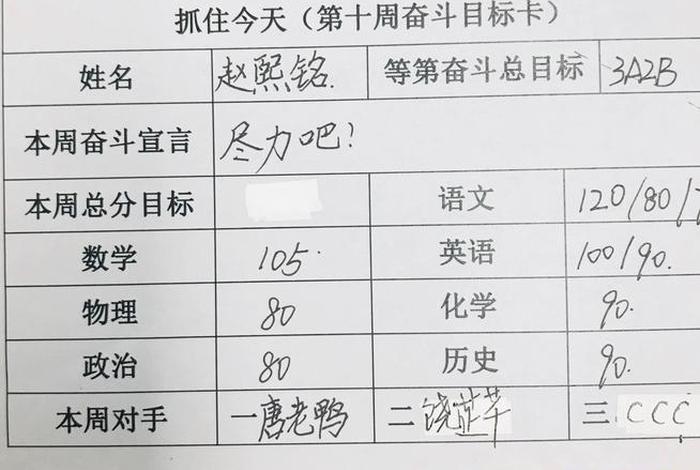 抓住今天（第十周奋斗目标卡）
姓名 赵熙铭. 等第奋斗总目标 3A2B
本周奋斗宣言 尽力吧!
本周总分目标 语文 120/80/
数学 105. 英语 100/90.
物理 80 化学 90.
政治 80 历史 90.
本周对手 一唐老鸭 二饶芷芊 三.CCC